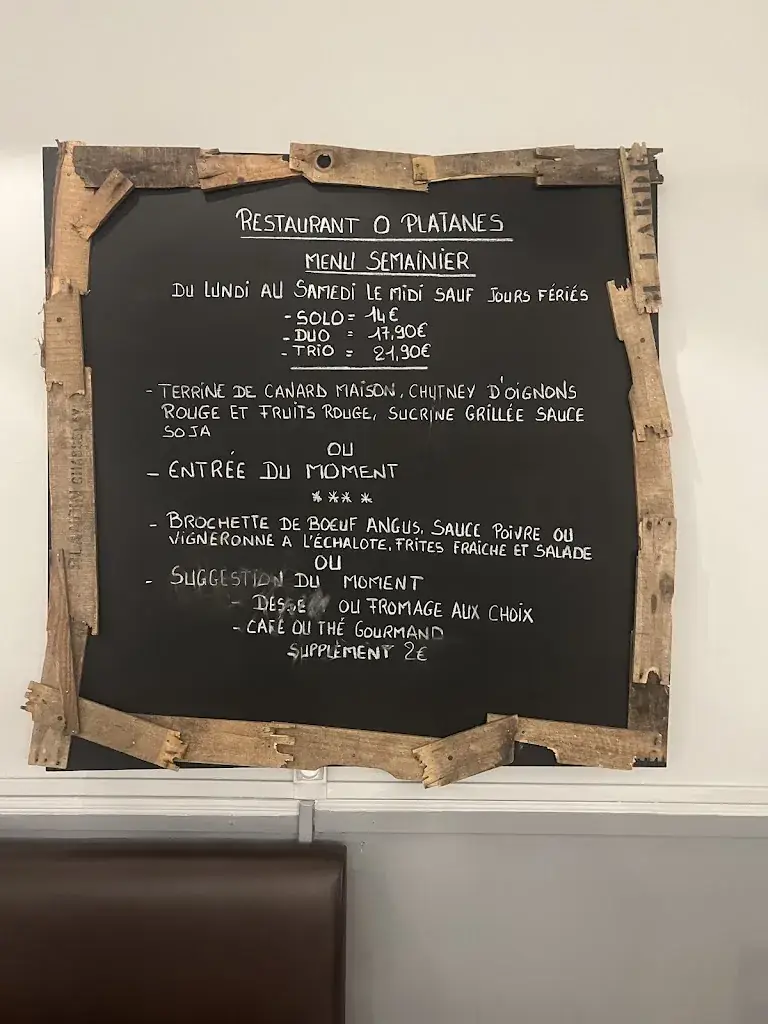 RESTAURANT O PLATANES
MENU SEMAINIER
DU LUNDI AU SAMEDI LE MIDI SAUF JOURS FÉRIÉS
- SOLO = 14€
- DUO = 17,90€
- TRIO = 21,90€
- TERRINE DE CANARD MAISON, CHUTNEY D'OIGNONS
ROUGE ET FRUITS ROUGE, SUCRINE GRILLÉE SAUCE
SOJA
OU
- ENTRÉE DU MOMENT
****
- BROCHETTE DE BOEUF ANGUS, SAUCE POIVRE OU
VIGNERONNE A L'ÉCHALOTE, FRITES FRAÎCHE ET SALADE
OU
- SUGGESTION DU MOMENT
- DESSE OU FROMAGE AUX CHOIX
- CAFÉ OU THÉ GOURMAND
SUPPLÉMENT 2€